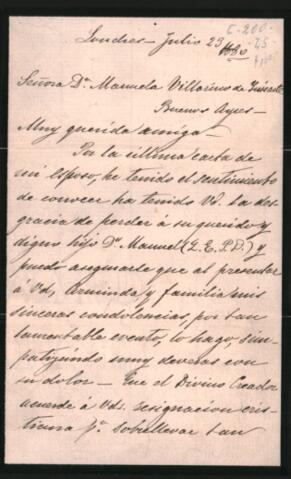 C-200-
25-
Londres - Julio 23 1886
Señora Da. Manuela Villarino de
Buenos Ayres -
Muy querida amiga -
Por la última carta de
mi esposo, he tenido el sentimiento
de conocer ha tenido Vd. la des-
gracia de perder a su querido y
digno hijo Dn. Manuel (Q.E.P.D.) y
puedo asegurarle que al presentar
a Vd, Orminda y familia mis
sinceras condolencias, por tan
lamentable evento, lo hago, sim-
patizando muy deveras con
su dolor - Que el Divino Creador
acuerde á Vds. resignacion cris-
tiana pa. sobrellevar tan